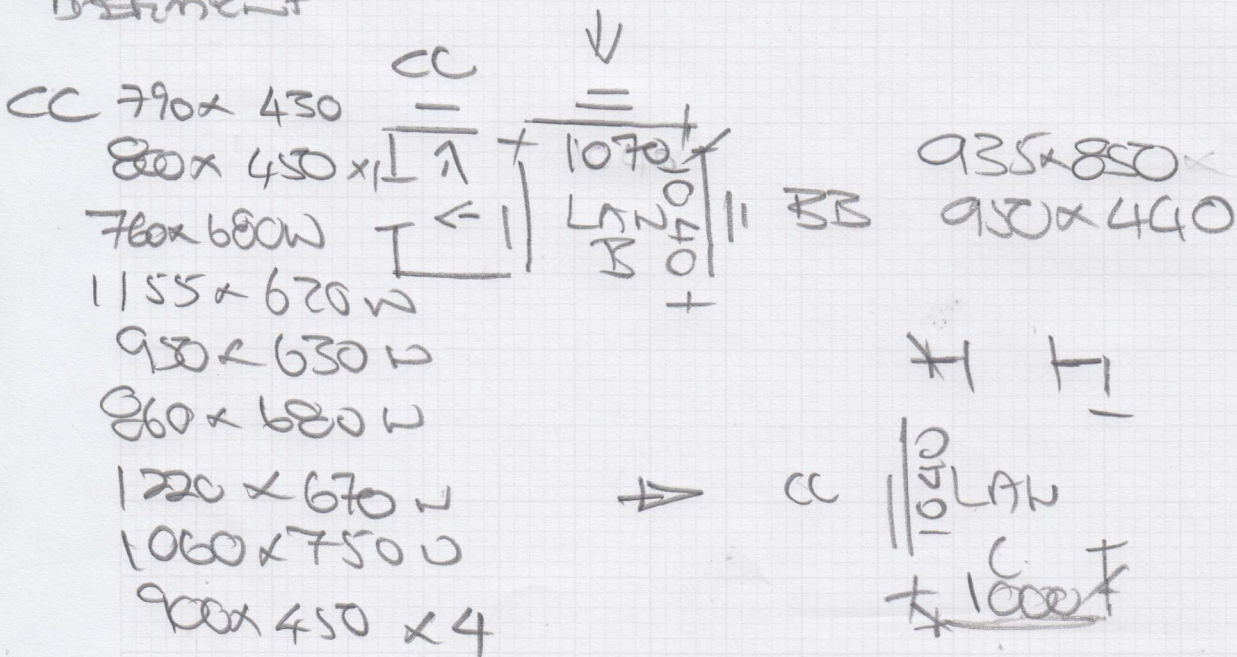 CC
CC 790 x 430
800 x 450 x 1
760 x 680 W
1155 x 620 W
950 x 630 W
860 x 680 W
1220 x 670 W
1060 x 750 W
900 x 450 x 4
1070
1040
LAN
B
BB
935 x 850
950 x 440
CC
1040
LAN
C
1000